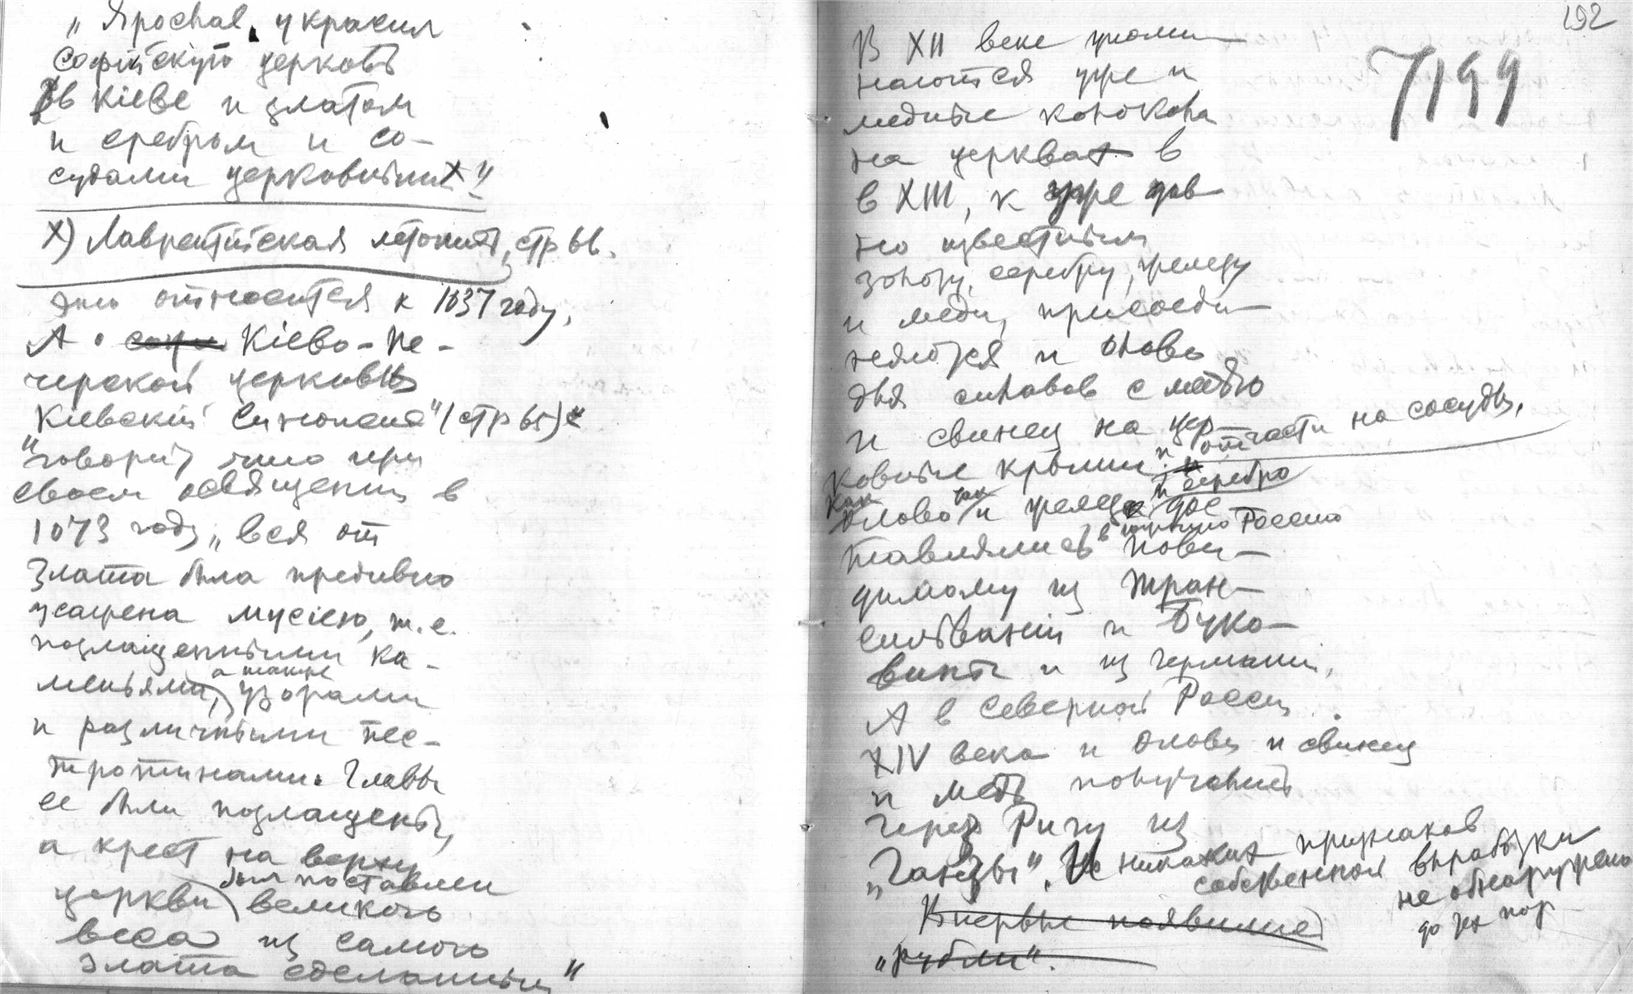 „Ярослав украсил
Софійскую церковь
в Кіеве и златом
и сребром и со-
судами церковными х"
х) Лаврентійская летопись, стр 66.
Это относится к 1037 году,
А о Кіево-Пе-
черской церкви
Кіевскій Синопсис" (стр 65)
"говорит, что при
своем освящении в
1073 году „вся от
злата была предивно
украшена мусіею, т.е.
позлащенными ка-
меньями, а также узорами
и различными пес-
тротинами. Главы
ее были позлащены,
а крест на верху
церкви был поставлен великого
веса из самого
злата сделанный"
192
7199
В XII веке упоми-
наются уже и
медные
на церквах в
в XIII, к уже дав
но известным
золоту, серебру, железу
и меди, присоеди-
няются и олово
для сплавов с медью
и свинец на цер-
ковные крыши и отчасти на сосуды.
Как олово так и железо и серебро дос
тавлялись в Россию пови-
димому из Тран-
сильваніи и Буко-
вины и из Германии.
А в Северной России
XIV века и олово и свинец
и медь получались
через Ригу из
„Ганзы". И никаких признаков
собственной выработки
не обнаружено
до сих пор
Впервые появились
„рубли".